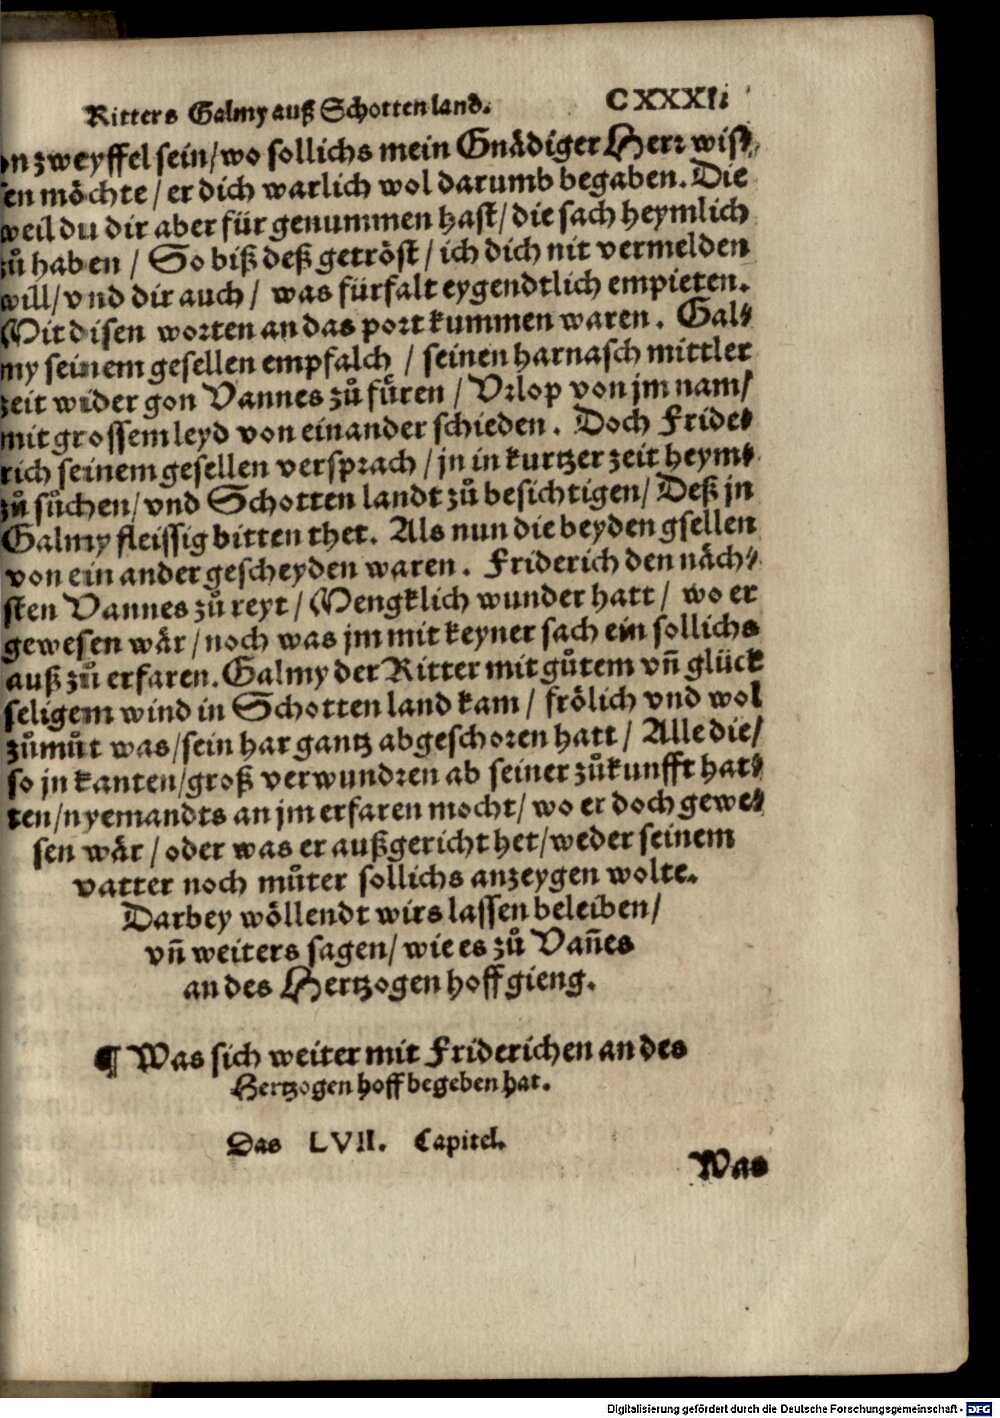 Ritters Galmy auß Schottenland. CXXXIi
on zweyffel sein/wo sollichs mein Gnådiger Herr wiss⸗
sen môchte/er dich warlich wol darumb begaben. Die
weil du dir aber für genummen hast/die sach heymlich
zů haben/So biß deß getrôst/ich dich nit vermelden
will/vnd dir auch/was fürfalt eygendtlich empieten.
Mit disen worten an das port kummen waren. Gal⸗
my seinem gesellen empfalch/seinen harnasch mittler
zeit wider gon Vannes zů fůren/Vrlop von jm nam/
mit grossem leyd von einander schieden. Doch Fride⸗
rich seinem gesellen versprach/jn in kurtzer zeit heym⸗
zů sůchen/vnd Schotten landt zů besichtigen/Deß jn
Galmy fleissig bitten thet. Als nun die beyden gsellen
von ein ander gescheyden waren. Friderich den nåch⸗
sten Vannes zů reyt/Mengklich wunder hatt/wo er
gewesen wår/noch was jm mit keyner sach ein sollichs
auß zů erfaren. Galmy der Ritter mit gůtem vñ glück
seligem wind in Schotten land kam/frôlich vnd wol
zůmůt was/sein har gantz abgeschoren hatt/Alle die/
so jn kanten/groß verwundren ab seiner zůkunfft hat⸗
ten/nyemandts an jm erfaren mocht/wo er doch gewe⸗
sen wår/oder was er außgericht het/weder seinem
vatter noch můter sollichs anzeygen wolte.
Darbey wôllendt wirs lassen beleiben/
vñ weiters sagen/wie es zů Vañes
an des Hertzogen hoff gieng.
¶ Was sich weiter mit Friderichen an des
Hertzogen hoff begeben hat.
Das LVII. Capitel.
Was
Digitalisierung gefördert durch die Deutsche Forschungsgemeinschaft - DFG